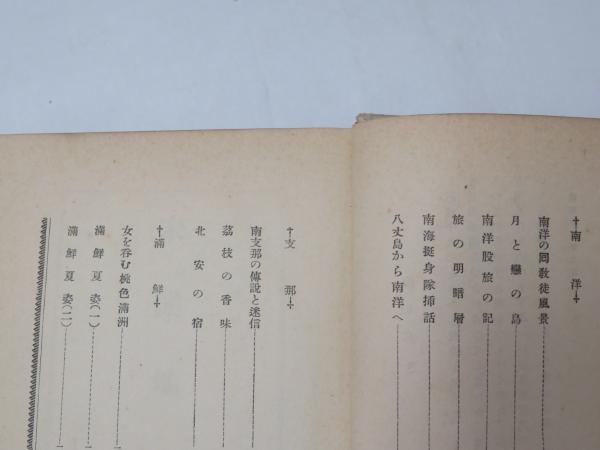 †南洋†
南洋の回教徒風景
月と戀の島
南洋股旅の記
旅の明暗層
南海挺身隊挿話
八丈島から南洋へ
†支那†
南支那の傳説と迷信
茘枝の香味
北安の宿
†滿鮮†
女を呑む桃色滿洲
滿鮮夏姿(一)
滿鮮夏姿(二)